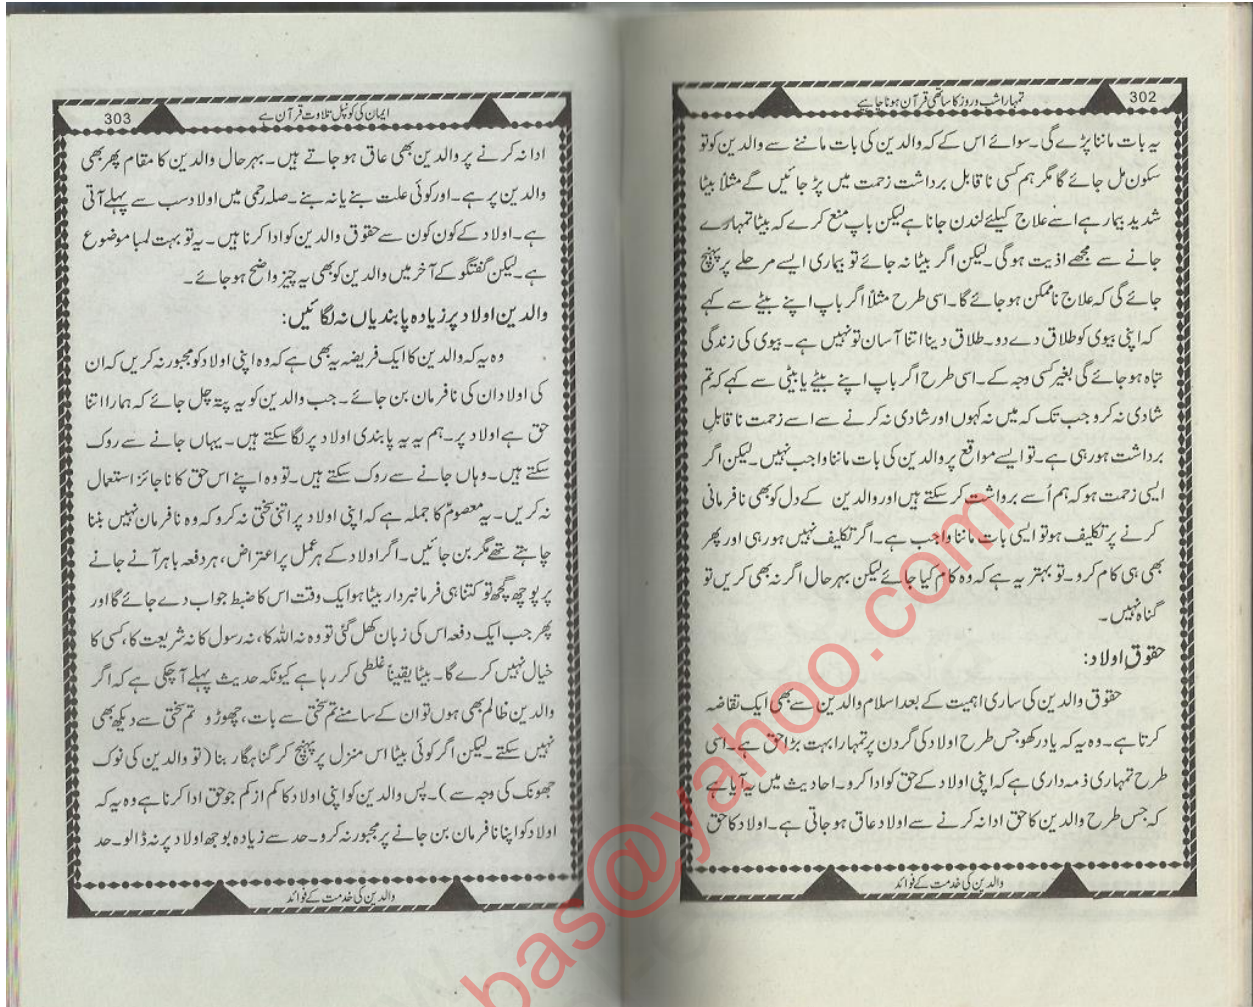 302
تمہارا شب و روز کا ساتھی قرآن ہونا چاہیے
یہ بات ماننا پڑے گی۔ سوائے اس کے کہ والدین کی بات ماننے سے والدین کو تو
سکون مل جائے گا مگر ہم کسی ناقابل برداشت زحمت میں پڑ جائیں گے مثلاً بیٹا
شدید بیمار ہے اسے علاج کیلئے لندن جانا ہے لیکن باپ منع کرے کہ بیٹا تمہارے
جانے سے مجھے اذیت ہوگی۔ لیکن اگر بیٹا نہ جائے تو بیماری ایسے مرحلے پر پہنچ
جائے گی کہ علاج ناممکن ہو جائے گا۔ اسی طرح مثلاً اگر باپ اپنے بیٹے سے کہے
کہ اپنی بیوی کو طلاق دے دو۔ طلاق دینا اتنا آسان تو نہیں ہے۔ بیوی کی زندگی
تباہ ہو جائے گی بغیر کسی وجہ کے۔ اسی طرح اگر باپ اپنے بیٹے یا بیٹی سے کہے کہ تم
شادی نہ کرو جب تک کہ میں نہ کہوں اور شادی نہ کرنے سے اسے زحمت ناقابلِ
برداشت ہو رہی ہے۔ تو ایسے مواقع پر والدین کی بات ماننا واجب نہیں۔ لیکن اگر
ایسی زحمت ہو کہ ہم اُسے برواشت کر سکتے ہیں اور والدین کے دل کو بھی نافرمانی
کرنے پر تکلیف ہو تو ایسی بات ماننا واجب ہے۔ اگر تکلیف نہیں ہو رہی اور پھر
بھی ہی کام کرو۔ تو بہتر یہ ہے کہ وہ کام کیا جائے لیکن بہرحال اگر نہ بھی کریں تو
گناہ نہیں۔
حقوقِ اولاد:
حقوق والدین کی ساری اہمیت کے بعد اسلام والدین سے بھی ایک تقاضہ
کرتا ہے۔ وہ یہ کہ یاد رکھو جس طرح اولاد کی گردن پر تمہارا بہت بڑا حق ہے۔ اسی
طرح تمہاری ذمہ داری ہے کہ اپنی اولاد کے حق کو ادا کرو۔ احادیث میں یہ آیا ہے
کہ جس طرح والدین کا حق ادا نہ کرنے سے اولاد عاق ہو جاتی ہے۔ اولاد کا حق
والدین کی خدمت کے فوائد
ایمان کی کونپل تلاوت قرآن ہے
303
ادا نہ کرنے پر والدین بھی عاق ہو جاتے ہیں۔ بہرحال والدین کا مقام پھر بھی
والدین پر ہے۔ اور کوئی علت بنے یا نہ بنے۔ صلہ رحمی میں اولاد سب سے پہلے آتی
ہے۔ اولاد کے کون کون سے حقوق والدین کو ادا کرنا ہیں۔ یہ تو بہت لمبا موضوع
ہے۔ لیکن گفتگو کے آخر میں والدین کو بھی یہ چیز واضح ہو جائے۔
والدین اولاد پر زیادہ پابندیاں نہ لگائیں:
وہ یہ کہ والدین کا ایک فریضہ یہ بھی ہے کہ وہ اپنی اولاد کو مجبور نہ کریں کہ ان
کی اولاد ان کی نافرمان بن جائے۔ جب والدین کو یہ پتہ چل جائے کہ ہمارا اتنا
حق ہے اولاد پر۔ ہم یہ یہ پابندی اولاد پر لگا سکتے ہیں۔ یہاں جانے سے روک
سکتے ہیں۔ وہاں جانے سے روک سکتے ہیں۔ تو وہ اپنے اس حق کا ناجائز استعمال
نہ کریں۔ یہ معصومؑ کا جملہ ہے کہ اپنی اولاد پر اتنی سختی نہ کرو کہ وہ نافرمان نہیں بننا
چاہتے تھے مگر بن جائیں۔ اگر اولاد کے ہر عمل پر اعتراض، ہر دفعہ باہر آنے جانے
پر پوچھ گچھ تو کتنا ہی فرمانبردار بیٹا ہو ایک وقت اس کا ضبط جواب دے جائے گا اور
پھر جب ایک دفعہ اس کی زبان کھل گئی تو وہ نہ اللہ کا، نہ رسول کا نہ شریعت کا، کسی کا
خیال نہیں کرے گا۔ بیٹا یقیناً غلطی کر رہا ہے کیونکہ حدیث پہلے آ چکی ہے کہ اگر
والدین ظالم بھی ہوں تو ان کے سامنے تم سختی سے بات، چھوڑ و تم سختی سے دیکھ بھی
نہیں سکتے۔ لیکن اگر کوئی بیٹا اس منزل پر پہنچ کر گناہگار بنا (تو والدین کی نوک
جھونک کی وجہ سے)۔ پس والدین کو اپنی اولاد کا کم از کم جو حق ادا کرنا ہے وہ یہ کہ
اولاد کو اپنا نافرمان بن جانے پر مجبور نہ کرو۔ حد سے زیادہ بوجھ اولاد پر نہ ڈالو۔ حد
والدین کی خدمت کے فوائد
bas@yahoo.com